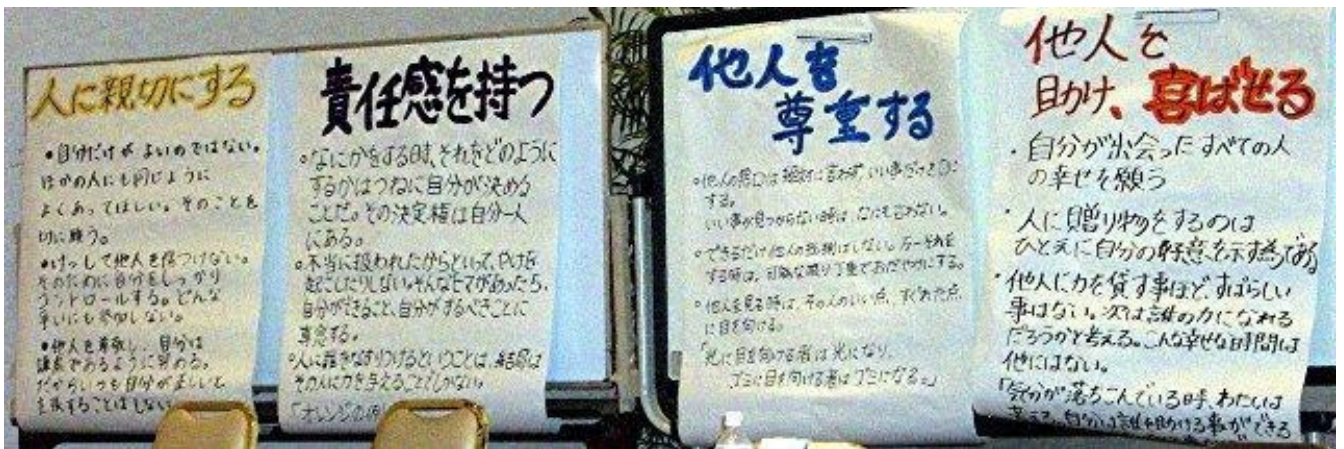 人に親切にする
・自分だけがよいのではない。
ほかの人にも同じように
よくあってほしい。そのことを
切に願う。
・けっして他人を傷つけない。
そのために自分をしっかり
コントロールする。どんな
争いにも参加しない。
・他人を尊敬し、自分は
謙虚であるように努める。
だからいつも自分が正しいと
主張することはしない
責任感を持つ
・なにかをする時、それをどのように
するかはつねに自分が決める
ことだ。その決定権は自分一人
にある。
・不当に扱われたからといって、やけを
起こしたりしない。そんなヒマがあったら、
自分ができること、自分がするべきことに
専念する。
・人に罪をなすりつけるということは、結局は
その人に力を与えることでしかない。
「オレンジの
他人を
尊重する
・他人の悪口は絶対に言わず、いい事だけを口に
する。
いい事が見つからない時は、なにも言わない。
・できるだけ他人の批判はしない。万一それを
する時は、可能な限り丁重でおだやかにする。
・他人を見る時は、その人のいい点、すぐれた点
に目を向ける。
「光に目を向ける者は光になり、
ゴミに目を向ける者はゴミになる。」
他人を
助け、喜ばせる
・自分が出会ったすべての人
の幸せを願う
・人に贈り物をするのは
ひとえに自分の好意を示す為である
・他人に力を貸す事ほど、すばらしい
事はない。次は誰の力になれる
だろうかと考える。こんな幸せな時間は
他にはない。
「気分が落ちこんでいる時、わたしは
考える。自分は誰を助ける事ができる